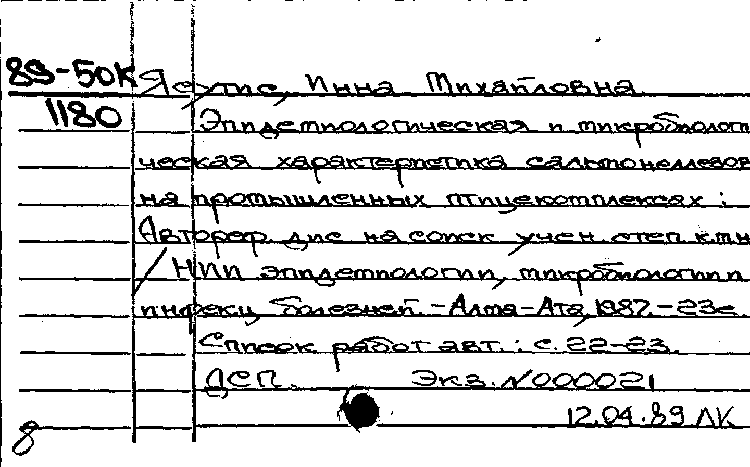 89-50К Ясутис, Инна Михайловна
1180 Эпидемиологическая и микробиологи
ческая характеристика сальмонеллезов
на промышленных птицекомплексах :
Автореф. дис на соиск учен. степ к.м.н
/ НИИ эпидемиологии, микробиологии и
инфекц. болезней. -Алма-Ата, 1987.-23с
Список работ авт. : с. 22-23.
ДСП. Экз. N000021
12.04.89 ЛК
8